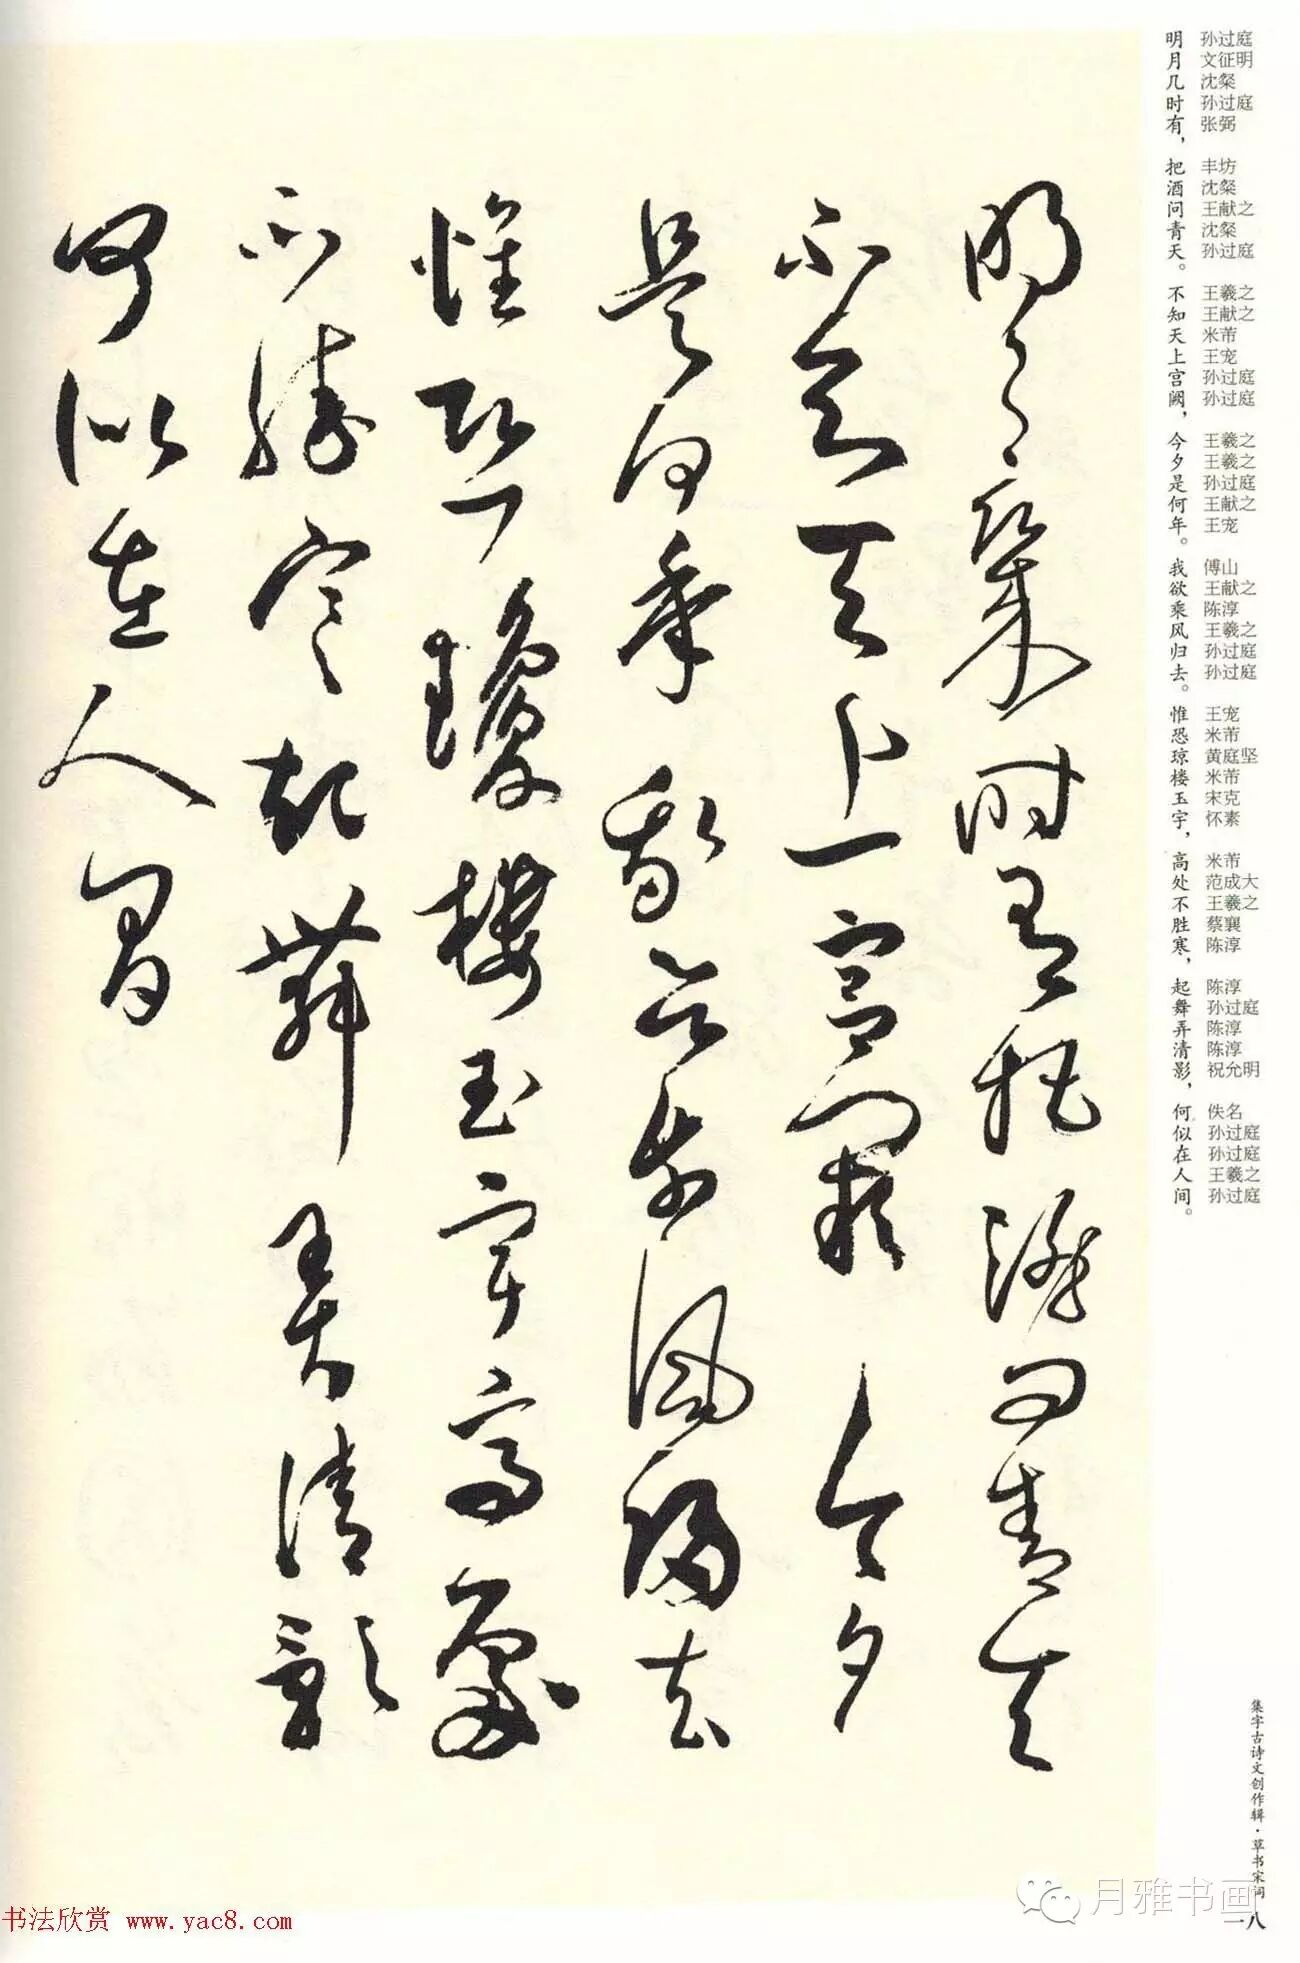 孙过庭 文征明 沈粲 孙过庭 张弼 丰坊 沈粲 王献之 沈粲 孙过庭 王羲之 王献之 米芾 王宠 孙过庭 孙过庭 王羲之 王羲之 孙过庭 王献之 王宠 傅山 王献之 陈淳 王羲之 孙过庭 孙过庭 王宠 米芾 黄庭坚 米芾 宋克 怀素 米芾 范成大 王羲之 蔡襄 陈淳 陈淳 孙过庭 陈淳 陈淳 祝允明 佚名 孙过庭 孙过庭 王羲之 孙过庭
明月几时有，把酒问青天。不知天上宫阙，今夕是何年。我欲乘风归去。惟恐琼楼玉宇，高处不胜寒，起舞弄清影，何似在人间。
明月幾時有把酒問青天
不知天上宮闕今夕
是何年我欲乘風歸去
惟恐瓊樓玉宇高處
不勝寒起舞弄清影
何似在人間
集字古诗文创作辑·草书宋词
一八
月雅书画
书法欣赏 www.yac8.com